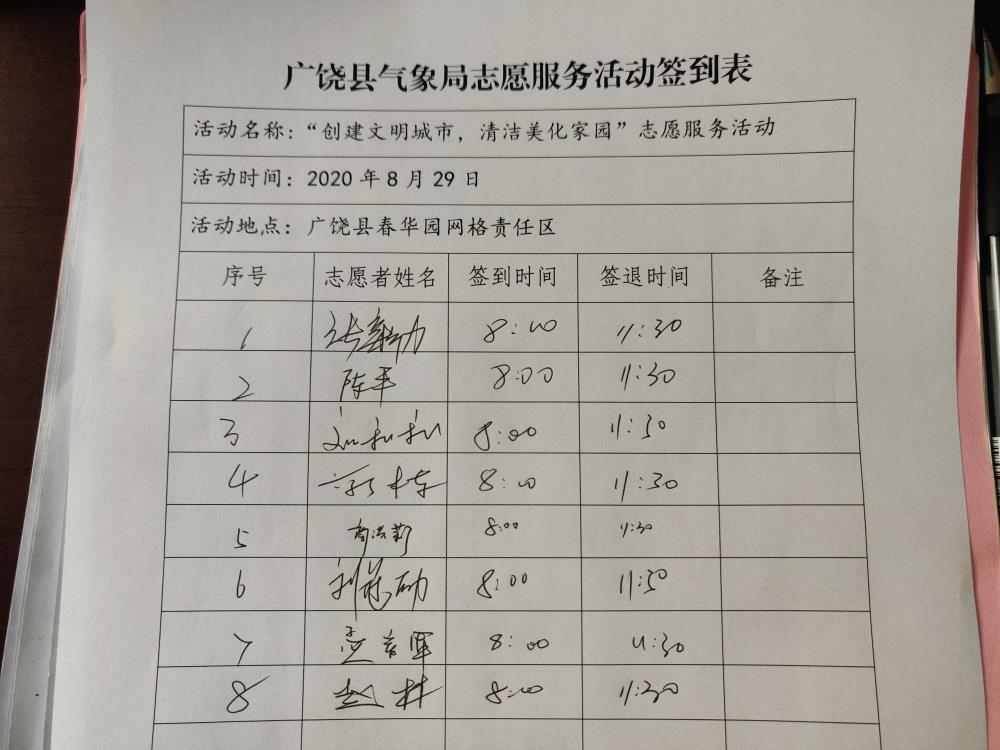 广饶县气象局志愿服务活动签到表
活动名称：“创建文明城市，清洁美化家园”志愿服务活动
活动时间：2020 年 8 月 29 日
活动地点：广饶县春华园网格责任区
序号 志愿者姓名 签到时间 签退时间 备注
1 8:00 11:30
2 陈平 8:00 11:30
3 8:00 11:30
4 8:00 11:30
5 8:00 11:30
6 8:00 11:30
7 8:00 11:30
8 赵林 8:00 11:30